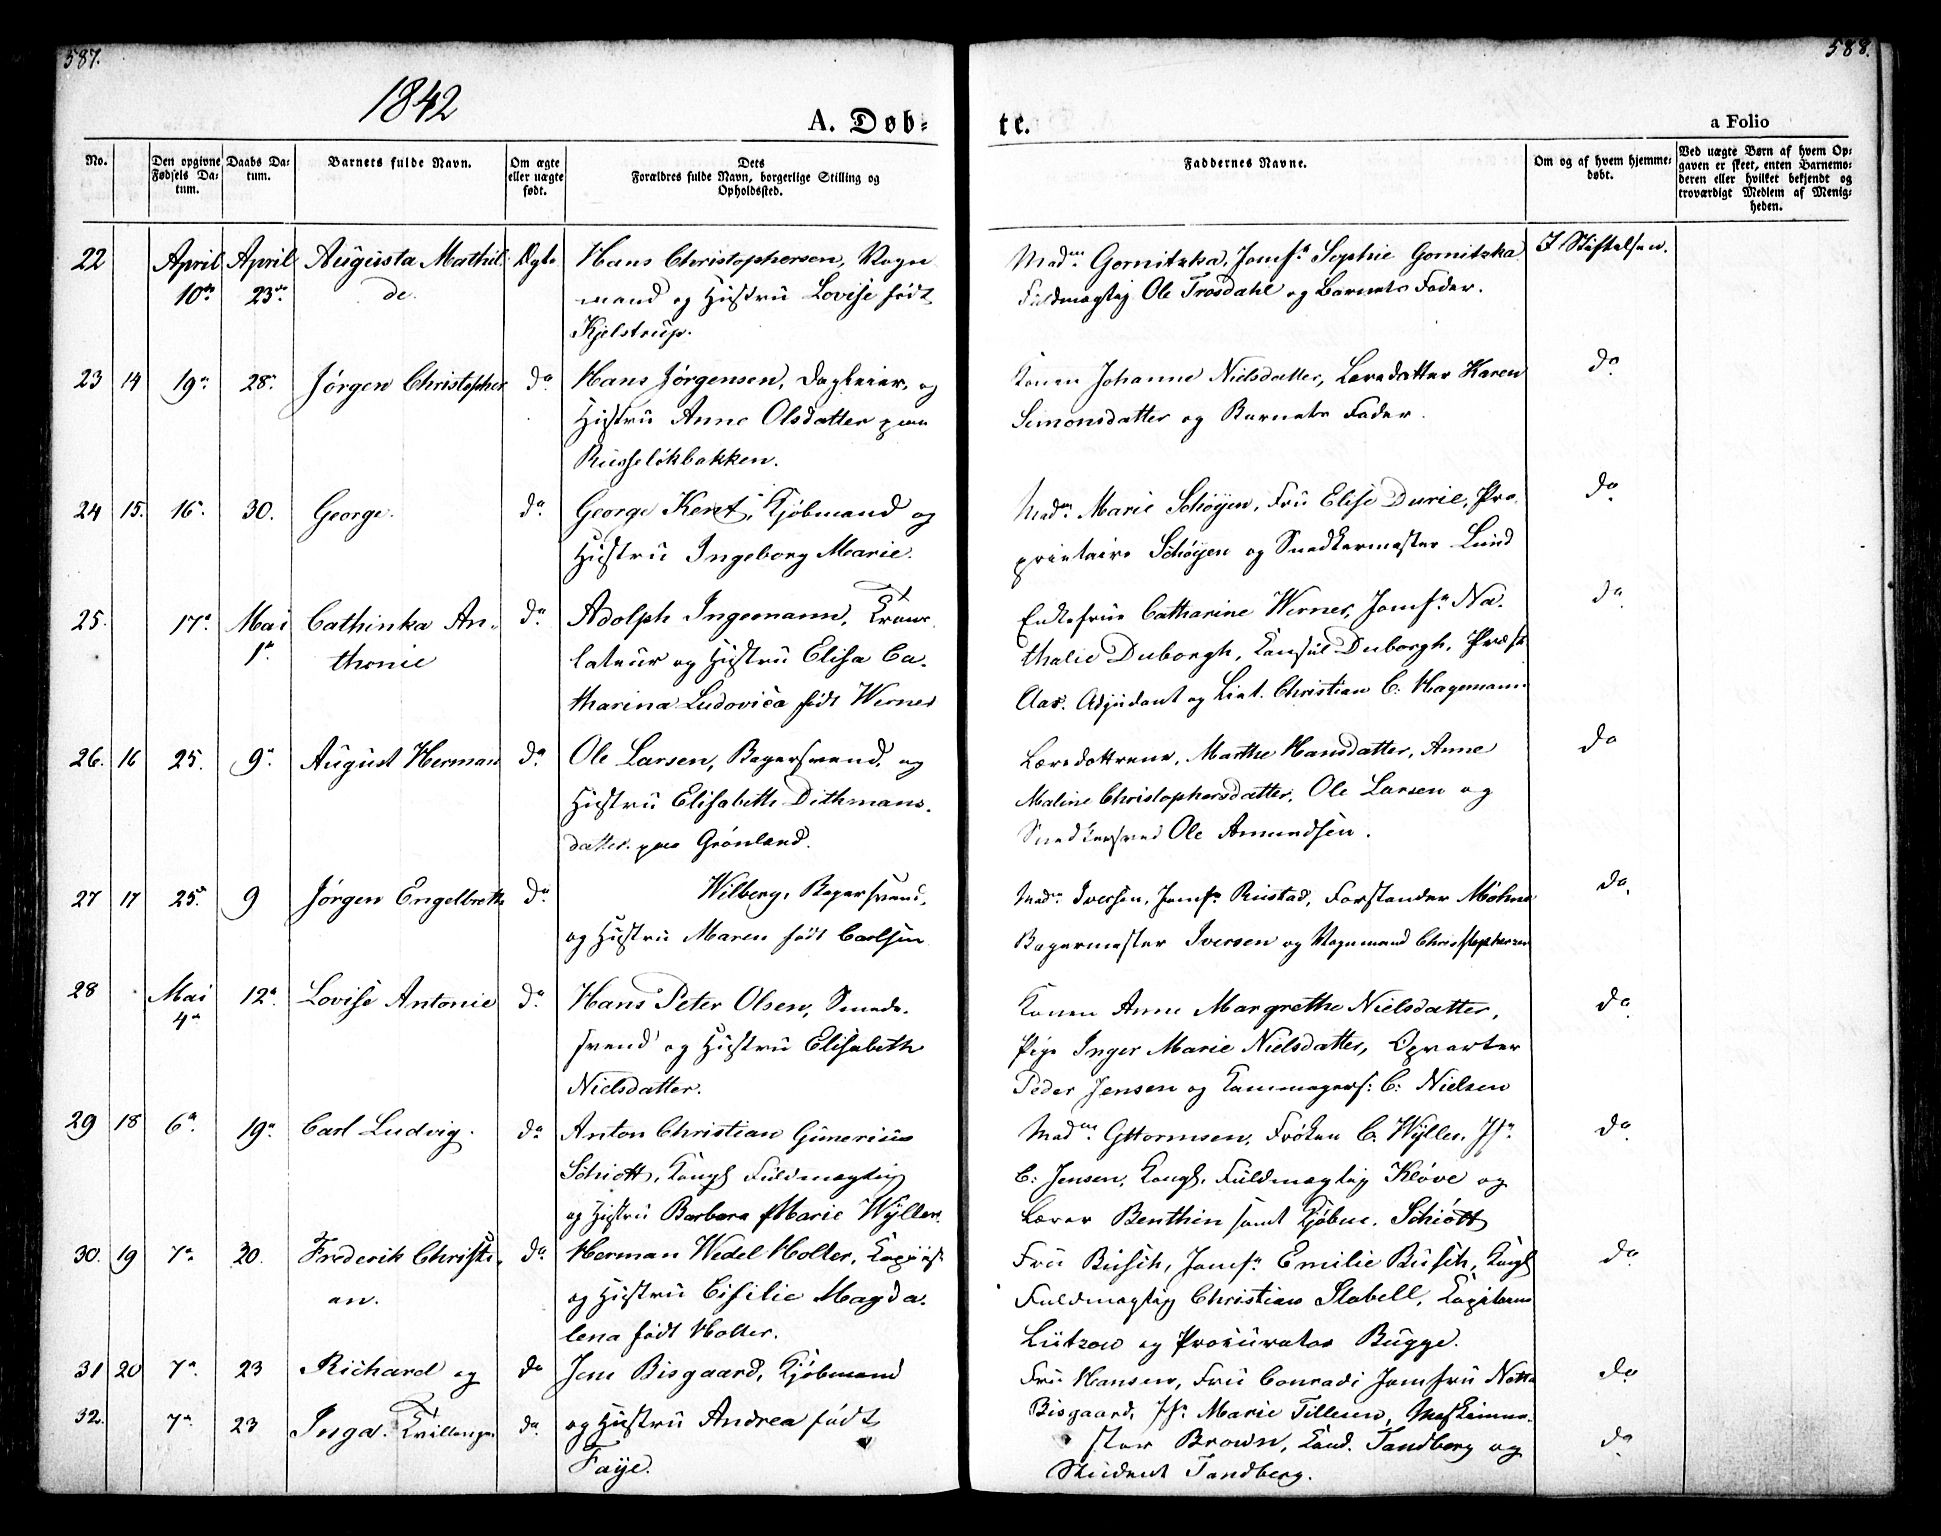 587.
588.
1842
A. Døb-
te.
a Folio
No.
Den opgivne Fødsels Datum.
Daabs Datum.
Barnets fulde Navn.
Om ægte eller uægte født.
Dets Forældres fulde Navn, borgerlige Stilling og Opholdssted.
Faddernes Navne.
Om og af hvem hjemmedøbt.
Ved uægte Børn af hvem Opgaven er skeet, enten Barnemoderen eller hvilket bekjendt og troværdigt Medlem af Menigheden.
22 April 10de April 23de Augusta Mathilde. Ægte
Hans Christophersen, Vognmand og Hustru Lovise født
Kjelstrup.
Madm. Gornitzka, Jomfr. Sophie Gornitzka
Fuldmægtig Ole Trosdahl og Barnets Fader.
I Stiftelsen.
23 14 19n 28n Jørgen Christopher do
Hans Jørgensen, Dagleier, og
Hustru Anne Olsdatter paa
Ruseløkbakken.
Konen Johanne Nielsdatter, Læredatter Karen
Simonsdatter og Barnets Fader.
do
24 15. 16n 30. George. do
George Kent, Kjøbmand og
Hustru Ingeborg Marie.
Madm. Marie Schøyen, Fru Elise Durie, Pro-
prietaire Schøyen og Snedkermester Lund
do
25. 17n Mai 1n Cathinka An-
thonie do
Adolph Ingemann,
lateur og Hustru Elisa Ca-
tharina Ludovica født Werner
Enkefrue Catharine Werner, Jomfr. Na-
thalie Duborgh, Consul Duborgh, Præst
Aas. Adjudant og Lieut. Christian C. Hagemann
do
26. 16 25. 9n August Herman do
Ole Larsen, Bagersvend, og
Hustru Elisabeth Dithmans-
datter paa Grønland.
Læredøttrene, Marthe Hansdatter, Anne
Maline Christophersdatter, Ole Larsen og
Snedkersvend Ole Amundsen.
do
27 17 25n 9 Jørgen Engelbreth do
Wilberg, Bagersvend,
og Hustru Maren født Carlsen
Madm. Iversen, Jomfr. Rustad, Forstander Mohn
Bagermester Iversen og Vognmand Christophersen
do.
28 Mai 4n 12n Lovise Antonie do
Hans Peter Olsen, Smede-
svend og Hustru Elisabeth
Nielsdatter.
Konen Anne Margrethe Nielsdatter,
Pige Inger Marie Nielsdatter, Opvarter
Peder Jensen og Kammagers: C: Nielsen
do.
29 18 6n 19n Carl Ludvig. do
Anton Christian Gunerius
Schiøtt, Kongl Fuldmægtig
og Hustru Barbara Marie Wyller.
Madm. Guttormsen, Frøken C. Wyller, Jfr.
C: Jensen, Kongl. Fuldmægtig Kløve og
Lærer Benthin samt Kjøbm. Schiøtt
do.
30. 19 7n 20. Frederik Christi-
an. do
Herman Wedel Holter, Kopiist
og Hustru Cisilie Magda-
lena født Holter.
Fru Busch, Jomfr. Emilie Busch, Kongl
Fuldmægtig Christian Stabell, Capitainen
Lützow og Procurator Bugge.
do.
31 20 7n 23 Richard og do
32. 7n 23 Inga. Tvillinger do.
Jens Bisgaard, Kjøbmand
og Hustru Andrea født
Faye.
Fru Hansen, Fru Conradi Jomfru
Bisgaard, Jfr. Marie Tillesen, Maskinme-
ster Brown, Cand. Tandberg og
Student Tandberg.
do
do